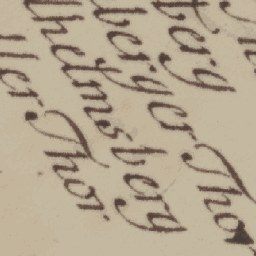 berg
berger Tho
lhelmsberg
ller Thor